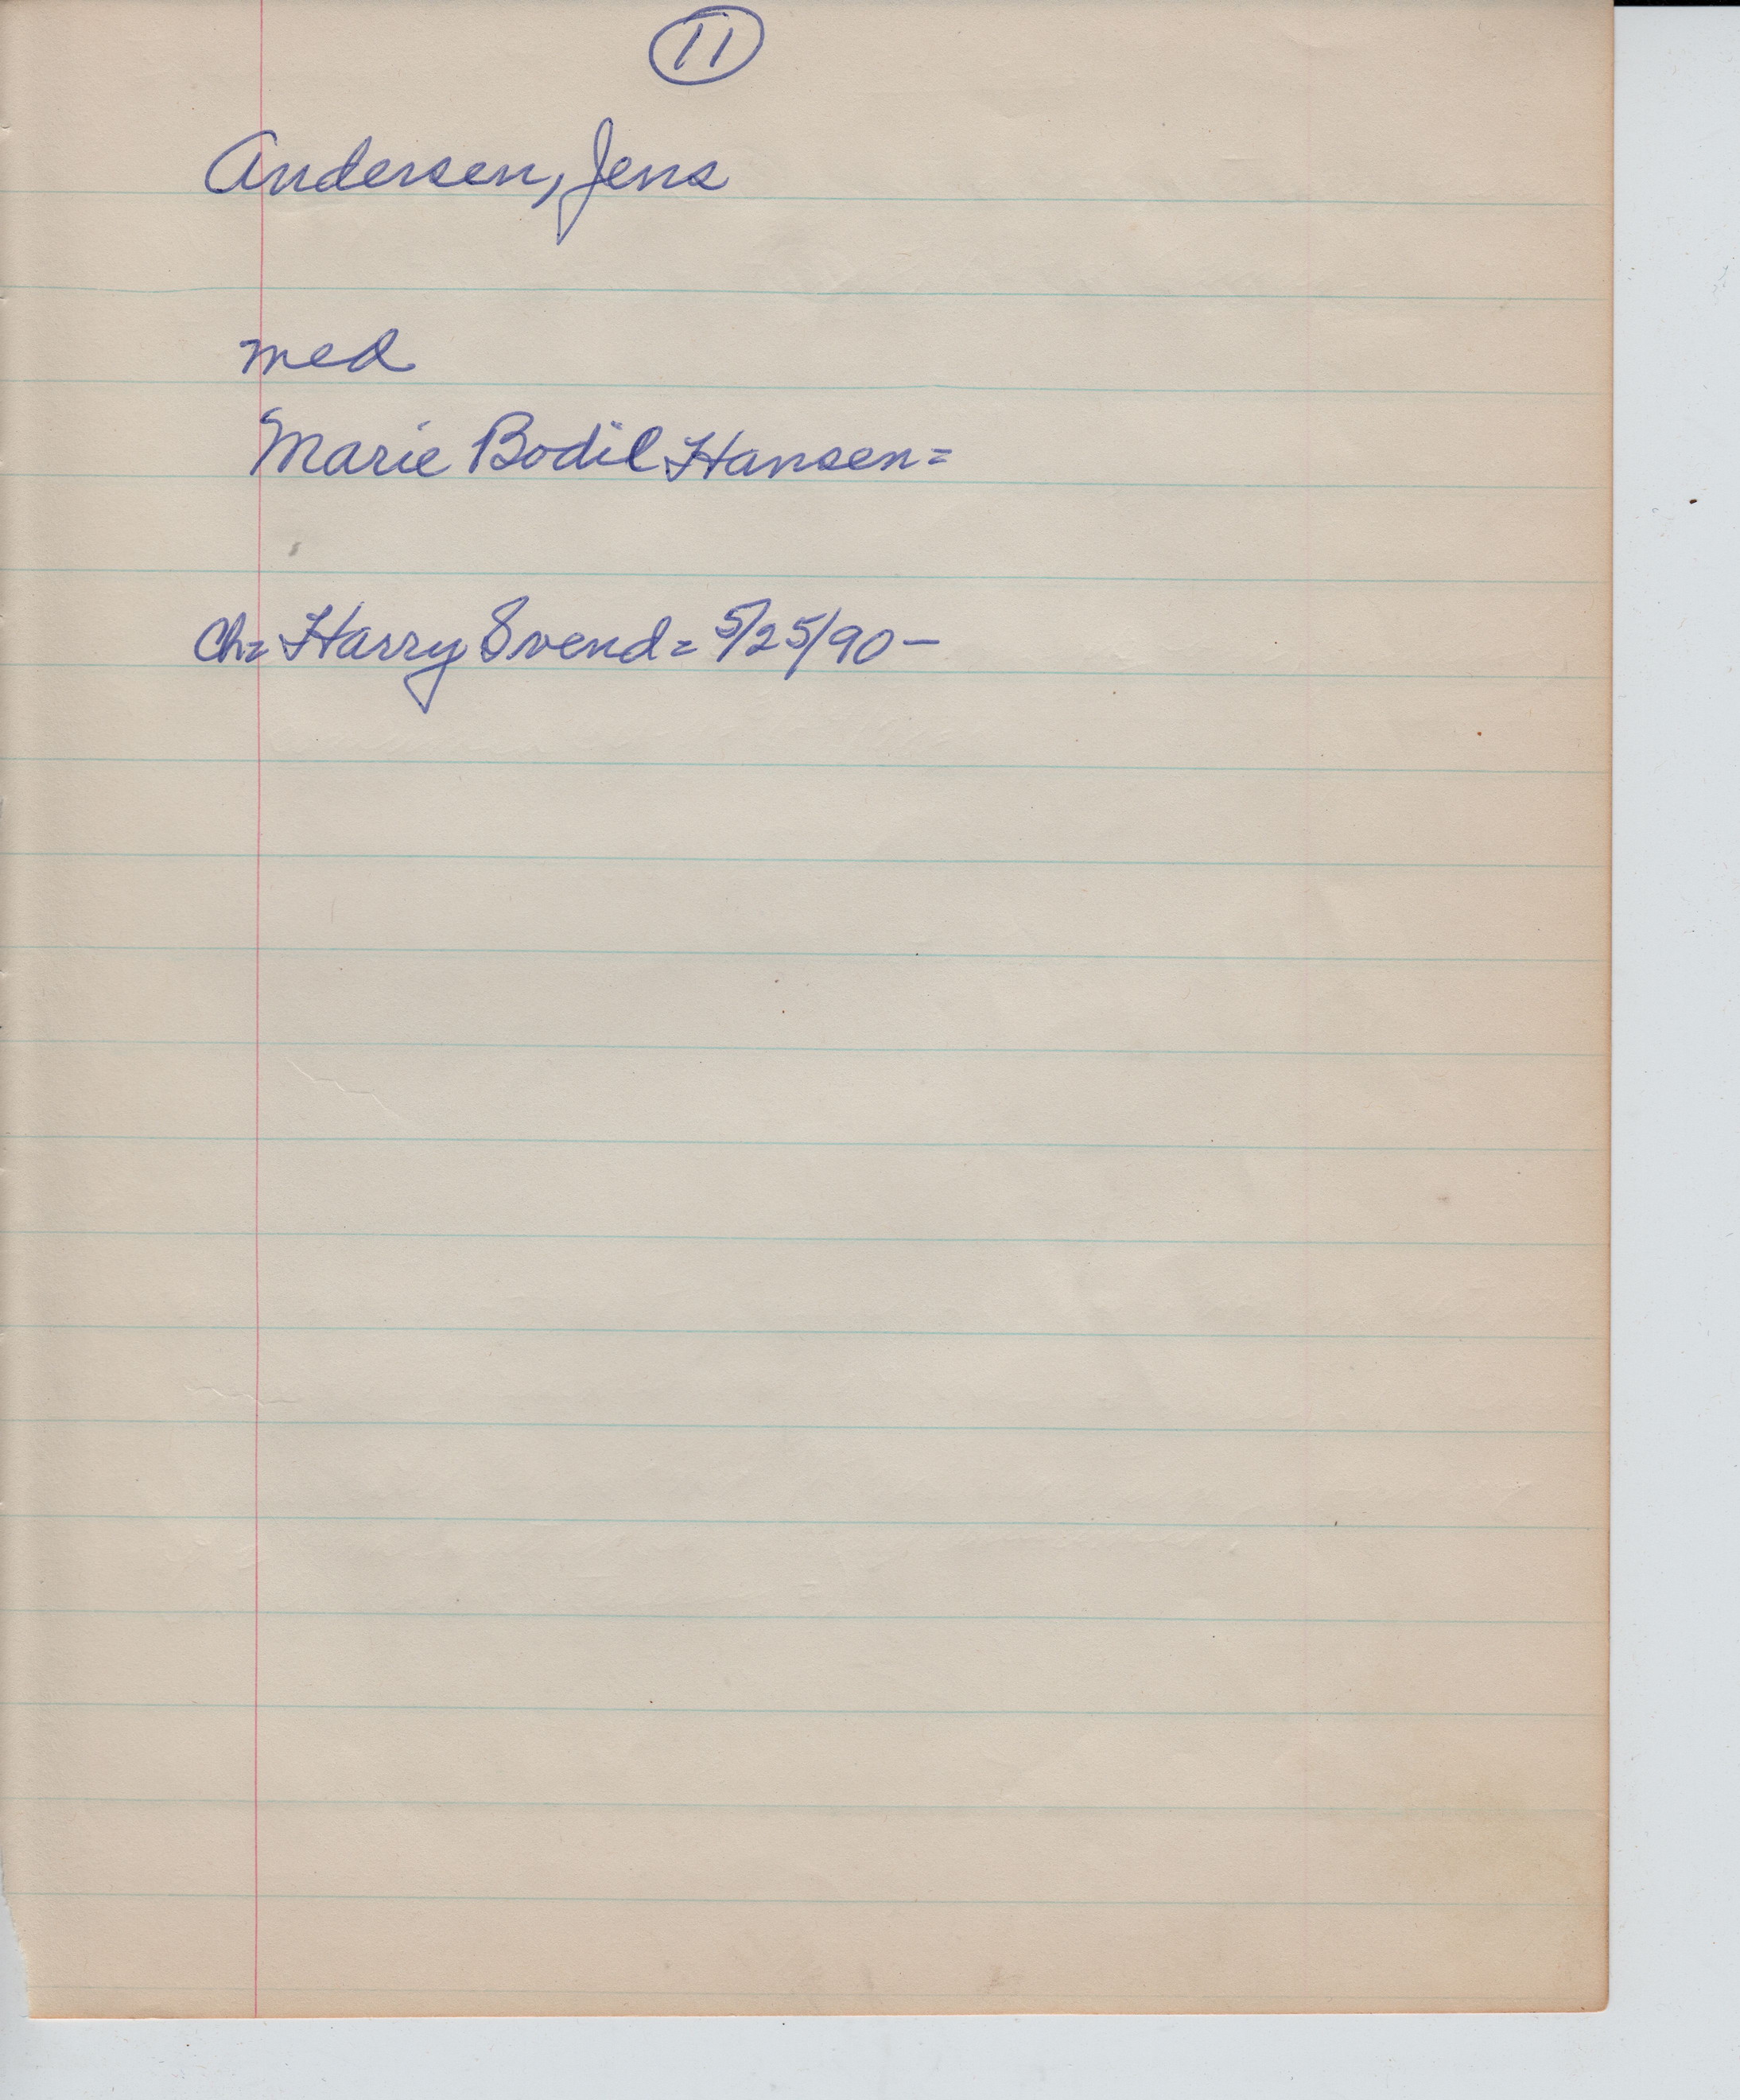 11
Andersen, Jens
med
Marie Bodil Hansen=
Ch= Harry Svend= 5/25/90-